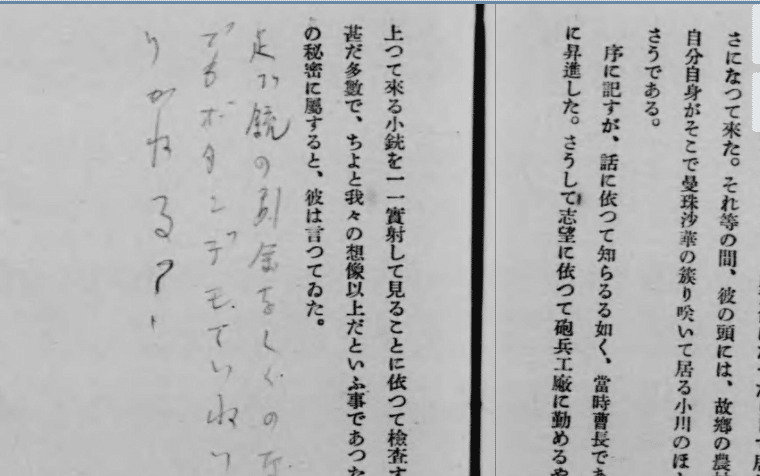 さになつて來た。それ等の間、彼の頭には、故鄕の農
自分自身がそこで曼珠沙華の簇り咲いて居る小川のほ
さうである。
序に記すが、話に依つて知らるる如く、當時曹長であ
に昇進した。さうして志望に依つて砲兵工廠に勤めるや
上つて來る小銃を一一實射して見ることに依つて檢査す
甚だ多數で、ちよと我々の想像以上だといふ事であつた
の秘密に屬すると、彼は言つてゐた。
銃の引金を
でもボタンデモ